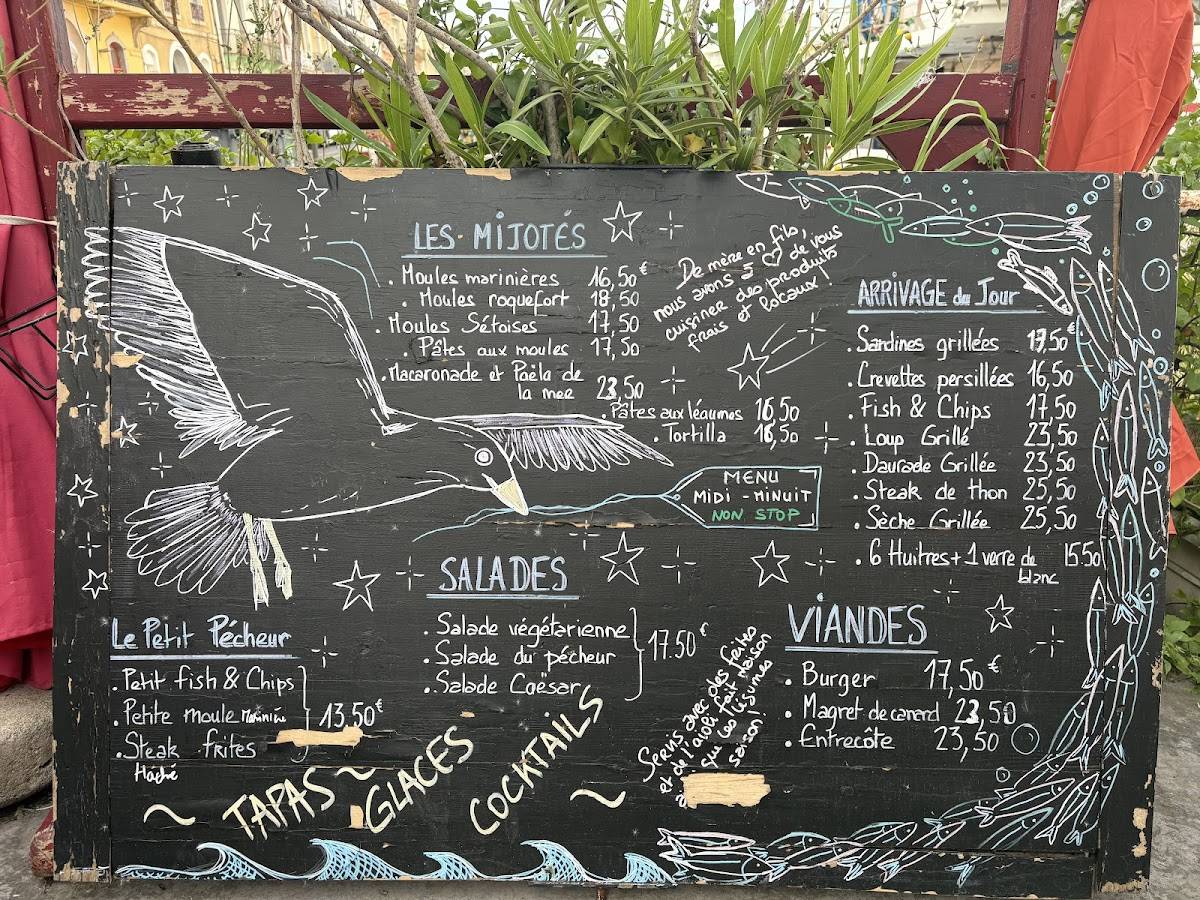 LES MIJOTÉS
Moules marinières 16,50€
Moules roquefort 18,50
Moules Sétoises 17,50
Pâtes aux moules 17,50
Macaronade et Paëla de
la mer 23,50
Pâtes aux léaumes 16,50
Tortilla 16,50
De mère en fils,
nous avons à ♡ de vous
cuisiner des produits
frais et locaux !
ARRIVAGE du Jour
Sardines grillées 17,50€
Crevettes persillées 16,50
Fish & Chips 17,50
Loup Grillé 23,50
Daurade Grillée 23,50
Steak de thon 25,50
Sèche Grillée 25,50
6 Huîtres + 1 verre de 15.50
blanc
MENU
MIDI - MINUIT
NON STOP
SALADES
Salade végétarienne
Salade du pécheur 17.50€
Salade Caësar
Le Petit Pécheur
Petit fish & Chips
Petite moule Marinière 13.50€
Steak frites
Haché
TAPAS ~
GLACES
COCKTAILS
Servis avec des frites
et de l'aïoli fait maison
que les légumes
saison!
VIANDES
Burger 17,50€
Magret de canard 23,50
Entrecôte 23,50